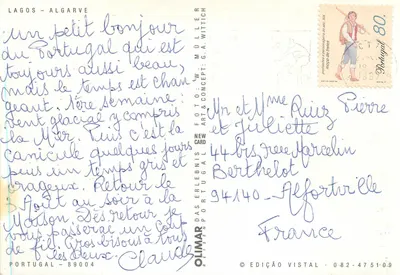 LAGOS - ALGARVE
Un petit bonjour
du Portugal qui est
toujours aussi beau,
mais le temps est chan
geant. 1ère semaine
vent glacial y compris
la Mer. Puis c'est la
canicule quelques jours
puis un temps gris et
orageux. Retour le
Août au soir à la
Maison. Dès retour je
vous passerai un coup
de fil. Gros bisous à tous
les deux. Claude
PORTUGAL - 89004
OLIMAR
DAS ERLEBNIS
PORTUGAL
NEW CARD
PHOTO: W. MÜLLER
ART & CONCEPT: G. A. WITTICH
80.
Portugal
Mr et Mme Ruiz Pierre
et Juliette
44 bis rue Marcelin
Berthelot
94140 - Alfortville
France
© EDIÇÃO VISTAL - 082-475100